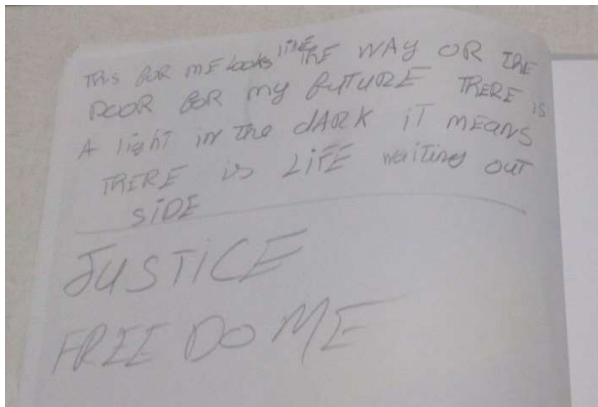 THiS FOR ME Looks LIKE THE WAY OR THE
DOOR FOR my FUTURE THERE iS
A light in The dARK iT MEANS
THERE is LiFE waiting OUT
SiDE
JUSTiCE
FREE DO ME